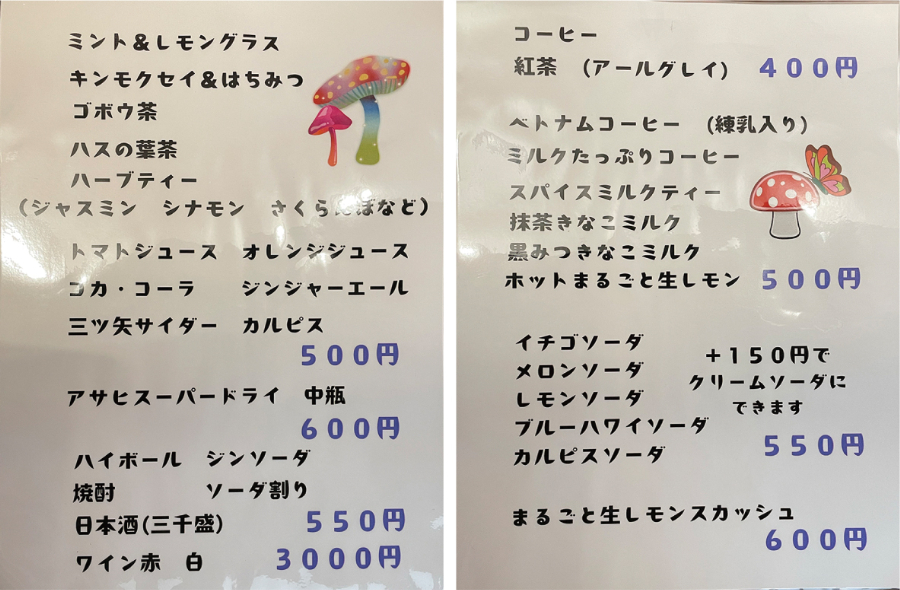 ミント＆レモングラス
キンモクセイ＆はちみつ
ゴボウ茶
ハスの葉茶
ハーブティー
（ジャスミン　シナモン　さくらんぼなど）
トマトジュース　オレンジジュース
コカ・コーラ　ジンジャーエール
三ツ矢サイダー　カルピス
５００円
アサヒスーパードライ　中瓶
６００円
ハイボール　ジンソーダ
焼酎　ソーダ割り
日本酒(三千盛)　５５０円
ワイン赤　白　３０００円
コーヒー
紅茶　（アールグレイ）　４００円
ベトナムコーヒー　（練乳入り）
ミルクたっぷりコーヒー
スパイスミルクティー
抹茶きなこミルク
黒みつきなこミルク
ホットまるごと生レモン　５００円
イチゴソーダ
メロンソーダ
レモンソーダ
ブルーハワイソーダ
カルピスソーダ
＋１５０円で
クリームソーダに
できます
５５０円
まるごと生レモンスカッシュ
６００円